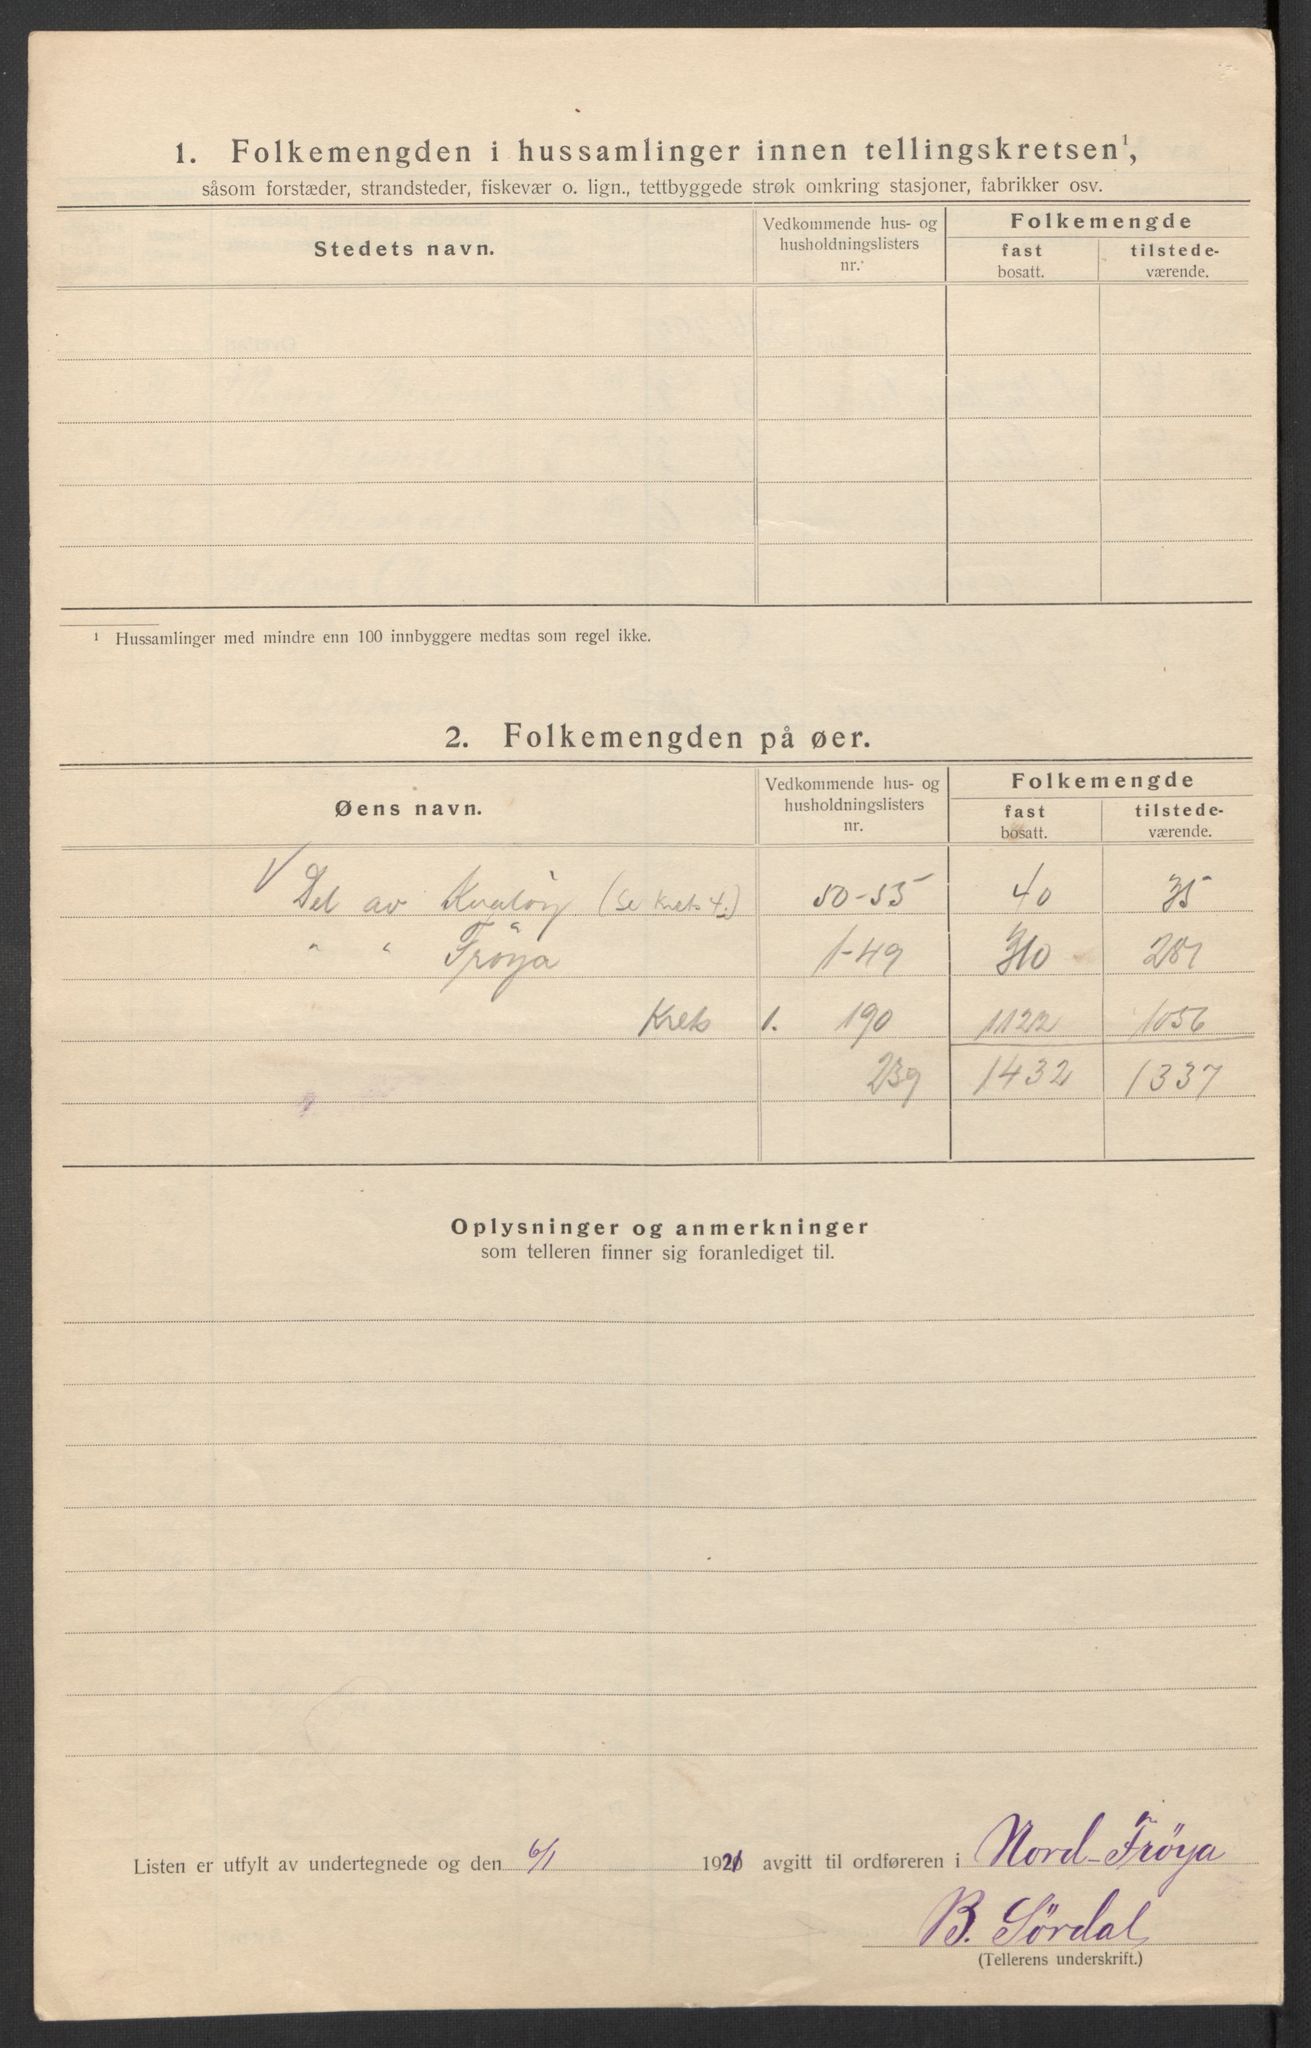 1. Folkemengden i hussamlinger innen tellingskretsen¹,
såsom forstæder, strandsteder, fiskevær o. lign., tettbyggede strøk omkring stasjoner, fabrikker osv.
Stedets navn.
Vedkommende hus- og husholdningslisters nr.
Folkemengde
fast bosatt.
tilstede-værende.
¹ Hussamlinger med mindre enn 100 innbyggere medtas som regel ikke.
2. Folkemengden på øer.
Øens navn.
Vedkommende hus- og husholdningslisters nr.
Folkemengde
fast bosatt.
tilstede-værende.
Del av (Se Krets 4) 50-55 40 35
" " Frøya 1-49 310 281
Krets 1. 190 1122 1056
239 1432 1337
Oplysninger og anmerkninger
som telleren finner sig foranlediget til.
Listen er utfylt av undertegnede og den 6/1 1921 avgitt til ordføreren i Nord-Frøya
B. Sørdal
(Tellerens underskrift.)